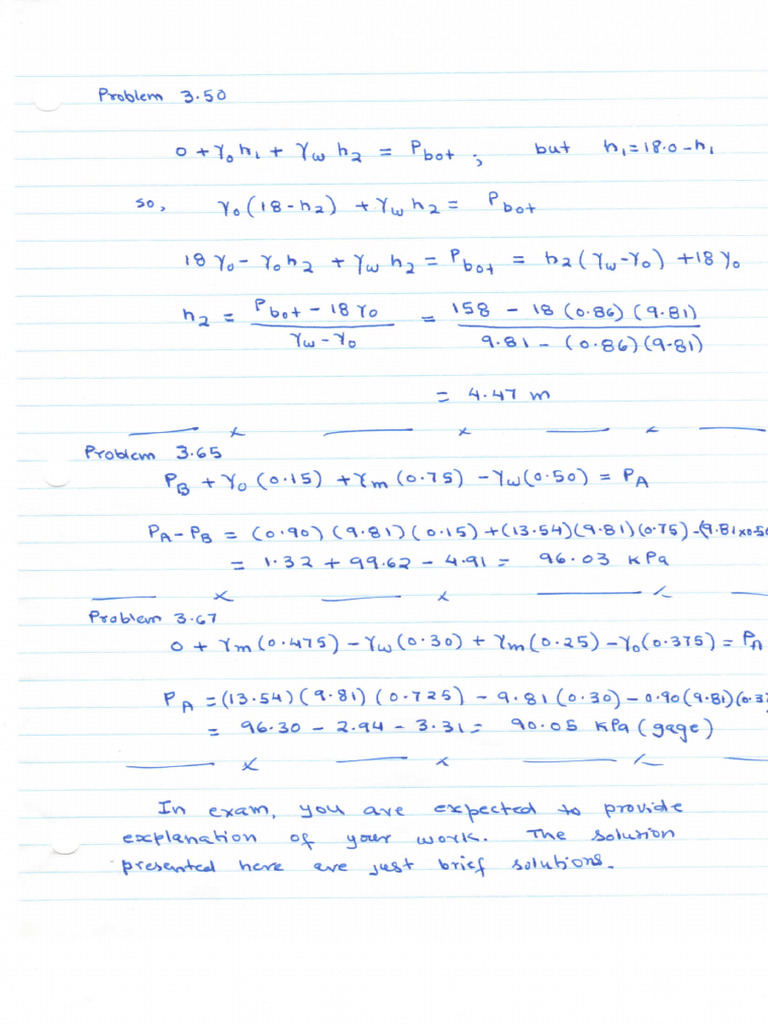 Problem 3.50
0 + γ₀h₁ + γw h₂ = Pbot ; but h₁ = 18.0 - h₁
so, γ₀(18 - h₂) + γw h₂ = Pbot
18 γ₀ - γ₀h₂ + γw h₂ = Pbot = h₂(γw - γ₀) + 18 γ₀
h₂ = (Pbot - 18 γ₀) / (γw - γ₀) = (158 - 18 (0.86) (9.81)) / (9.81 - (0.86)(9.81))
= 4.47 m
Problem 3.65
PB + γ₀ (0.15) + γm (0.75) - γw(0.50) = PA
PA - PB = (0.90) (9.81) (0.15) + (13.54)(9.81)(0.75) - (9.81x0.50
= 1.32 + 99.62 - 4.91 = 96.03 kPa
Problem 3.67
0 + γm (0.475) - γw (0.30) + γm (0.25) - γ₀(0.375) = PA
PA = (13.54) (9.81) (0.725) - 9.81 (0.30) - 0.90 (9.81) (0.37
= 96.30 - 2.94 - 3.31 = 90.05 kPa (gage)
In exam, you are expected to provide
explanation of your work. The solution
presented here are just brief solutions.